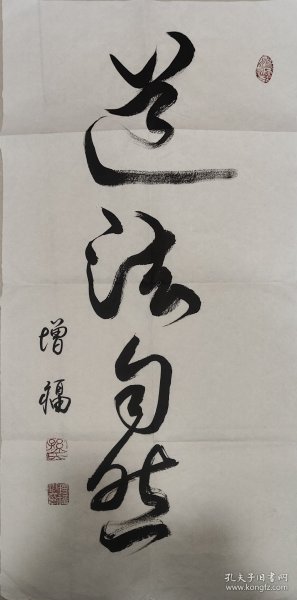 道法自然
增福
孔夫子旧书网
www.kongfz.com